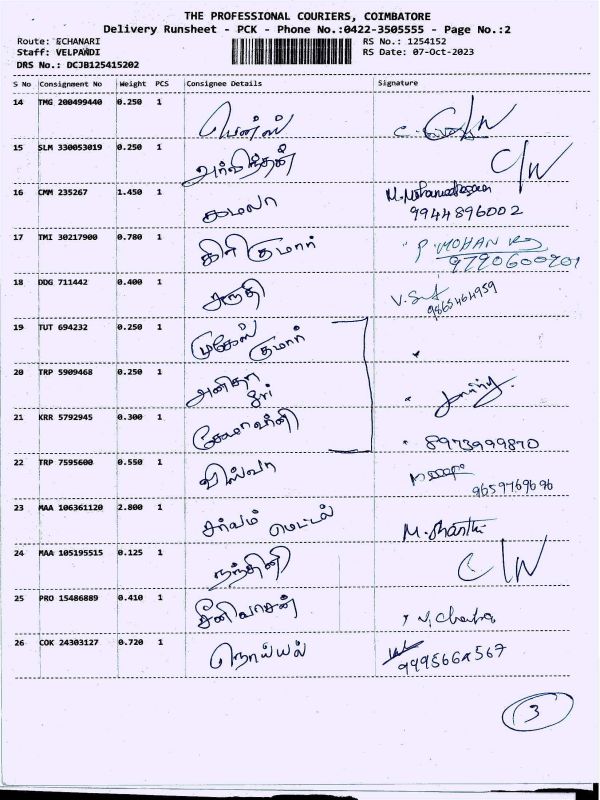 THE PROFESSIONAL COURIERS, COIMBATORE
Delivery Runsheet - PCK - Phone No.:0422-3505555 - Page No.:2
Route: ECHANARI RS No.: 1254152
Staff: VELPANDI RS Date: 07-Oct-2023
DRS No.: DCJB125415202
S No Consignment No Weight PCS Consignee Details Signature
14 TMG 200499440 0.250 1
15 SLM 330053019 0.250 1 அரவிந்தன் C/W
16 CMM 235267 1.450 1 கமலா
9944896002
17 TMI 30217900 0.780 1 கிரி குமார் P. MOHAN
9790600701
18 DDG 711442 0.400 1
9865464959
19 TUT 694232 0.250 1 முகேஸ் குமார்
20 TRP 5909468 0.250 1 அனிதா
ஸ்ரீ
21 KRR 5792945 0.300 1 8973999870
22 TRP 7595600 0.550 1 வில்வா
9659769696
23 MAA 106361120 2.800 1 சர்வம் மெட்டல் M. Shanthi
24 MAA 105195515 0.125 1 நந்தினி C/W
25 PRO 15486889 0.410 1 சீனிவாசன்
26 COK 24303127 0.720 1 நொய்யல்
3